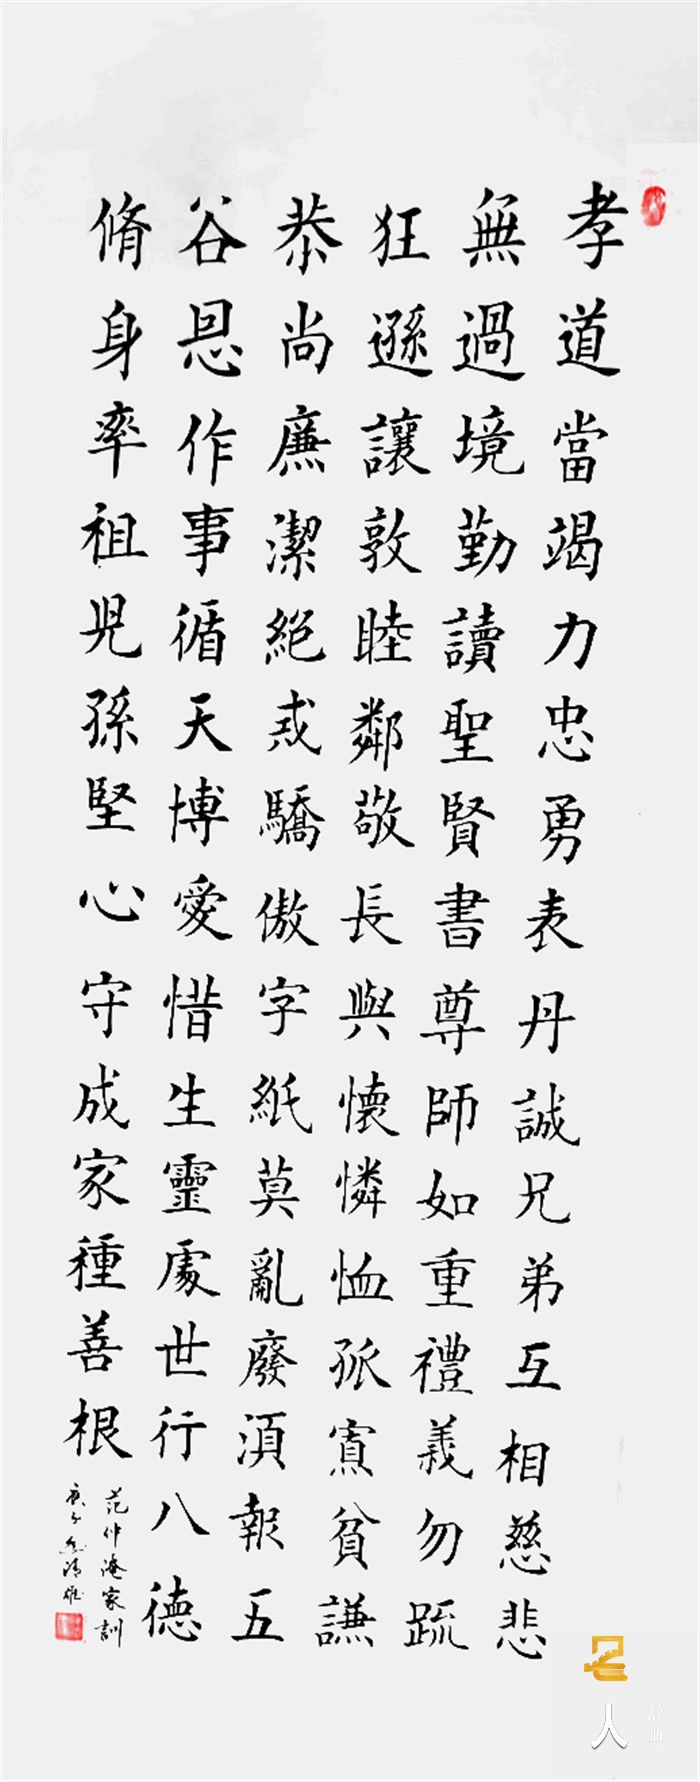 孝道當竭力忠勇表丹誠兄弟互相慈悲
無過境勤讀聖賢書尊師如重禮義勿疏
狂遜讓敦睦鄰敬長與懷憐恤孤寡貧謙
恭尚廉潔絕戒驕傲字紙莫亂廢須報五
谷恩作事循天博愛惜生靈處世行八德
脩身率祖児孫堅心守成家種善根
范仲淹家訓
庚子
名
人
辞典